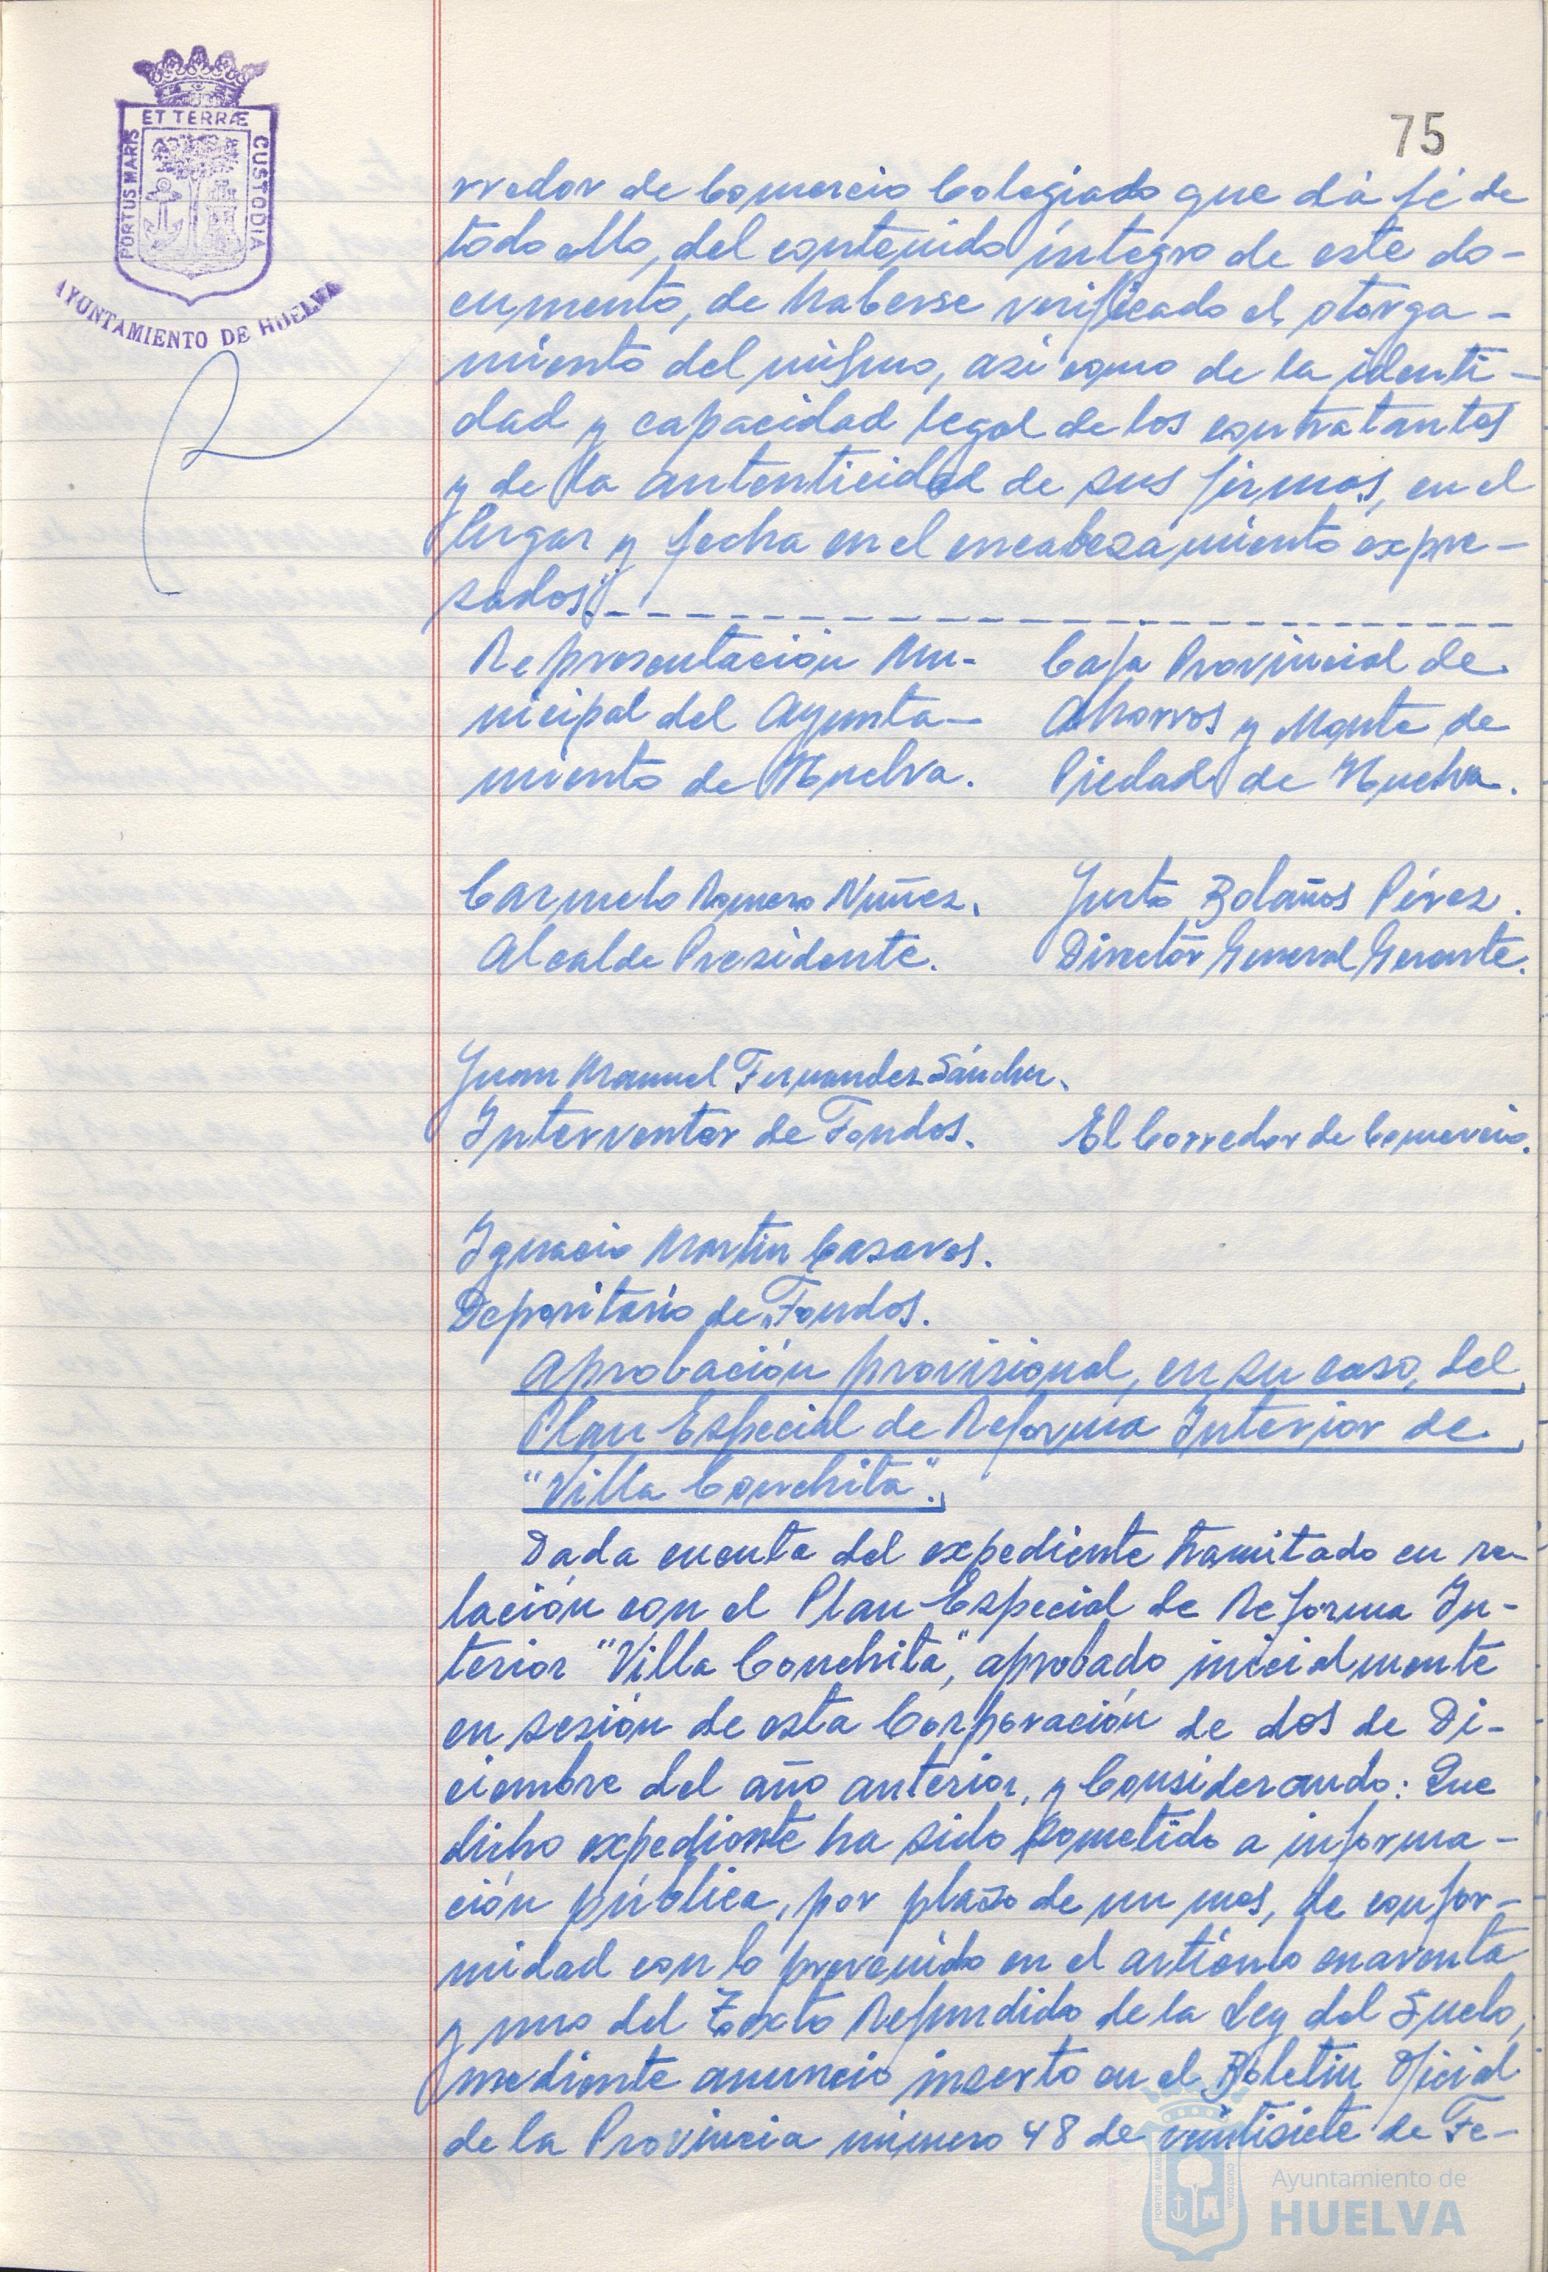 ET TERRÆ
PORTUS MARIS
CUSTODIA
AYUNTAMIENTO DE HUELVA
75
rredor de Comercio Colegiado que dá fé de
todo ello, del contenido íntegro de este do-
cumento, de haberse verificado el otorga-
miento del mismo, así como de la identi-
dad y capacidad legal de los contratantes
y de la autenticidad de sus firmas, en el
lugar y fecha en el encabezamiento expre-
sados".
Representación Mu-
nicipal del Ayunta-
miento de Huelva.
Caja Provincial de
Ahorros y Monte de
Piedad de Huelva.
Carmelo Romero Núñez.
Alcalde Presidente.
Justo Bolaños Pérez.
Director General Gerente.
Juan Manuel Fernandez Sánchez.
Interventor de Fondos.
El Corredor de Comercio.
Ignacio Martin Casares.
Depositario de Fondos.
Aprobación provisional, en su caso, del
Plan Especial de Reforma Interior de
"Villa Conchita".
Dada cuenta del expediente tramitado en re-
lación con el Plan Especial de Reforma In-
terior "Villa Conchita", aprobado inicialmente
en sesión de esta Corporación de dos de Di-
ciembre del año anterior, y Considerando: Que
dicho expediente ha sido sometido a informa-
ción pública, por plazo de un mes, de confor-
midad con lo prevenido en el artículo cuarenta
y uno del Texto Refundido de la Ley del Suelo,
mediante anuncio inserto en el Boletin Oficial
de la Provincia número 48 de veintisiete de Fe-
Ayuntamiento de
HUELVA